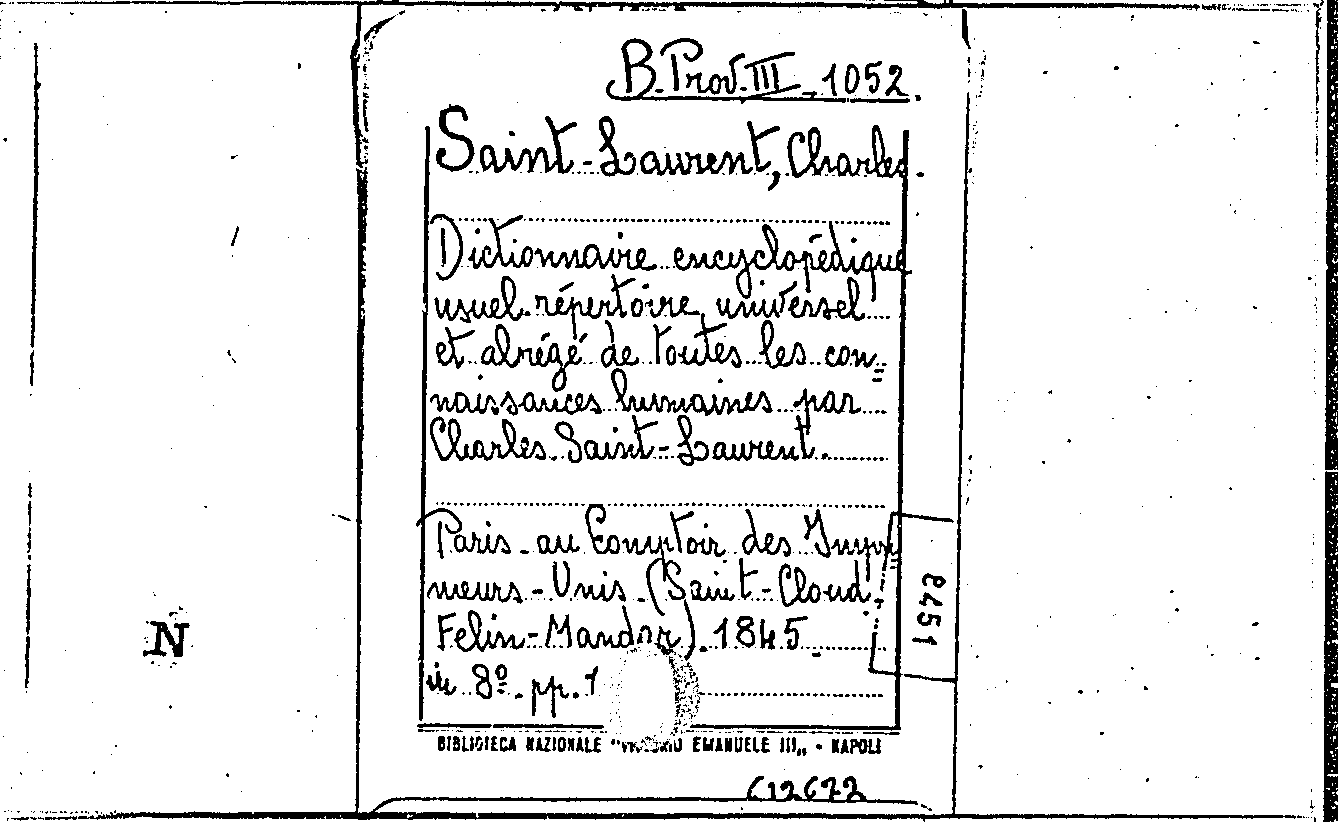 B. Prov. III - 1052.
Saint-Laurent, Charles.
Dictionnaire encyclopédique
usuel. répertoire universel
et abrégé de toutes les con=
naissances humaines par
Charles Saint-Laurent.
Paris - au Comptoir des Impri=
meurs-Unis. (Saint-Cloud.
Felin-Mandar). 1845.
in 8º. pp. 1
BIBLIOTECA NAZIONALE "VITTORIO EMANUELE III„ - NAPOLI
612672
2451
N